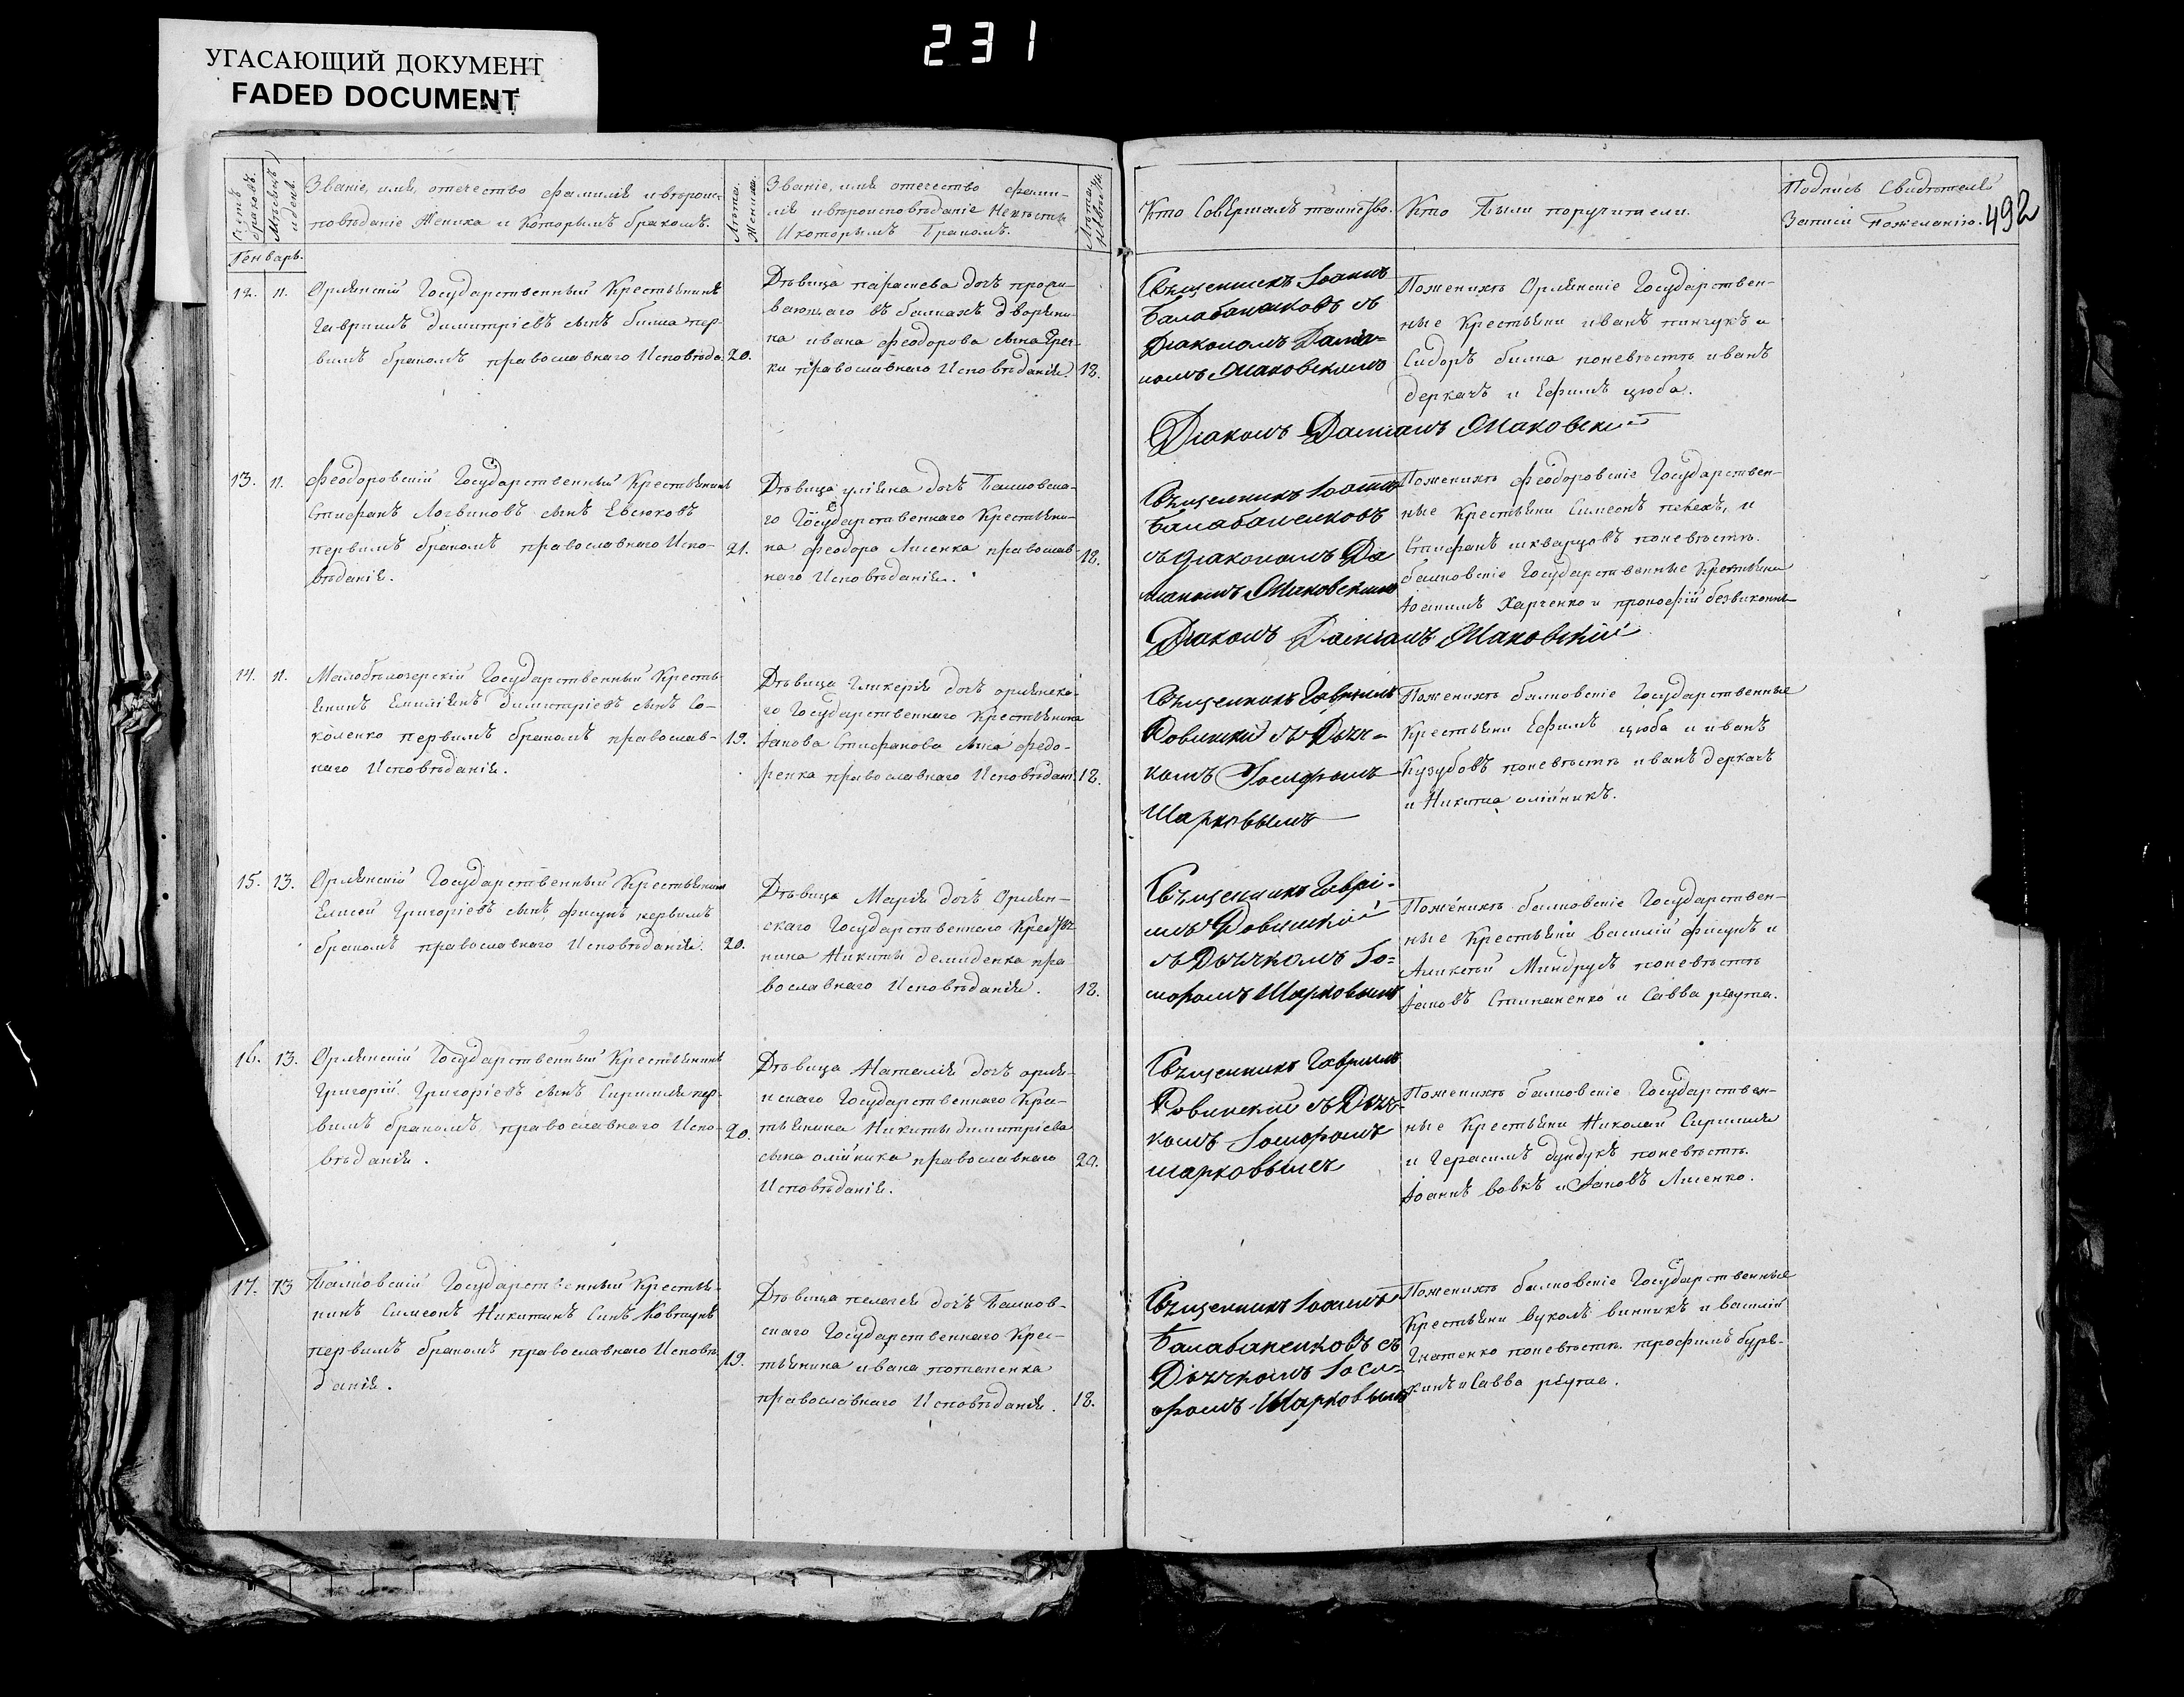 231
УГАСАЮЩИЙ ДОКУМЕНТ
FADED DOCUMENT
Счетъ браковъ.
Мѣсяцъ и день.
Званіе, имя, отечество фамилія и вѣроис-
повѣданіе Жениха и Которымъ бракомъ.
Лѣта Жениха.
Званіе, имя отечество фами-
лія и вѣроисповѣданіе Невѣсты
И которымъ Бракомъ.
Лѣта невѣсты.
Генварь.
12. 11. Орлянскій Государственный Крестьянинъ
Гавріилъ димитріевъ сынъ билна пер-
вымъ бракомъ православнаго Исповѣда. 20.
Дѣвица параскева дочь прожи-
вающаго въ балкахъ дворяни-
на ивана феодорова сына
ки православнаго Исповѣданія. 18.
13. 11. Феодоровскій Государственный Крестьянинъ
Стефанъ Логвиновъ сынъ Евсюковъ
первымъ бракомъ православнаго Испо- 21.
вѣданія.
Дѣвица уліяна дочь Балковска-
го Государственнаго Крестьяни-
на феодора Лисенка православ- 18.
наго Исповѣданія.
14. 11. Малобѣлозерскій Государственный Кресть-
янинъ Емиліянъ димитріевъ сынъ Со-
коленко первымъ бракомъ православ- 19.
наго Исповѣданія.
Дѣвица гликерія дочь орлянска-
го Государственнаго Крестьянина
Іакова Стефанова сына федо-
ренка православнаго Исповѣдані. 18.
15. 13. Орлянскій Государственный Крестьянинъ
Елисей Григоріевъ сынъ фисунъ первымъ
бракомъ православнаго Исповѣданія. 20.
Дѣвица Марія дочь Орлян-
скаго Государственнаго Крестья-
нина Никиты демиденка пра-
вославнаго Исповѣданія. 18.
16. 13. Орлянскій Государственный Крестьянинъ
Григорій Григоріевъ сынъ Сиримля пер-
вымъ бракомъ православнаго Испо- 20.
вѣданія.
Дѣвица Наталія дочь орля-
нскаго Государственнаго Крес-
тьянина Никиты димитріева
сына олійника православнаго 20.
Исповѣданія.
17. 13 Балковскій Государственный Крестья-
нинъ Симеонъ Никитинъ Синъ Ковтунъ
первымъ бракомъ православнаго Исповѣ 19.
данія.
Дѣвица пелагея дочь Балков-
скаго Государственнаго Крес-
тьянина ивана потапенка
православнаго Исповѣданія. 18.
Кто Совершалъ таинство.
Кто Были поручители.
Подпись Свидѣтелей
Записи Пожеланію. 492
Священникъ Іоаннъ
Балабаненковъ съ
Діакономъ Дамiа-
номъ Маковскимъ
Діаконъ Даміанъ Маковскій
Поженихѣ Орлянскіе Государствен-
ные Крестьяни иванъ пинчукъ и
Сидоръ билна поневѣстѣ иванъ
деркачъ и Ефимъ цюба.
Священникъ Іоаннъ
Балабаненковъ
съ діакономъ Да
міаномъ Маковскимъ
Діаконъ Даміанъ Маковскій
Поженихѣ феодоровскіе Государствен-
ные Крестьяни Симеонъ пекехъ, и
Стефанъ шкварцовъ поневѣстѣ.
балковскіе Государственные Крестьяни
Іоакимъ Харченко и прокофій безвиконн
Священникъ Гавріилъ
Ровинскій съ Дьяч-
комъ Іосифомъ
Шарковымъ
Поженихѣ балковскіе Государственные
Крестьяни Ефимъ цюба и иванъ
Кузубовъ поневѣстѣ иванъ деркачъ
и Никита олійникъ.
Священникъ Гаврі-
илъ Ровинскій
съ Дьячкомъ Іо-
сифомъ Шарковымъ
Поженихѣ балковскіе Государствен-
ные Крестьяни василій фисунъ и
Аникѣй Миндрулъ поневѣстѣ
Іаковъ Степаненко и Савва реута.
Священникъ Гавріилъ
Ровинскій съ Дьяч-
комъ Іосифомъ
шарковымъ
Поженихѣ балковскіе Государствен-
ные Крестьяни Николай Сиримля
и Герасимъ дундукъ поневѣстѣ.
Іоаннъ вовкъ и Іаковъ Лисенко.
Священникъ Іоаннъ
Балабаненковъ съ
Дьячкомъ Іоси-
фомъ Шарковымъ
Поженихѣ балковскіе Государственные
Крестьяни вуколъ винникъ и василій
Гнатенко поневѣстѣ. трофимъ буря-
кинъ и Савва реута.